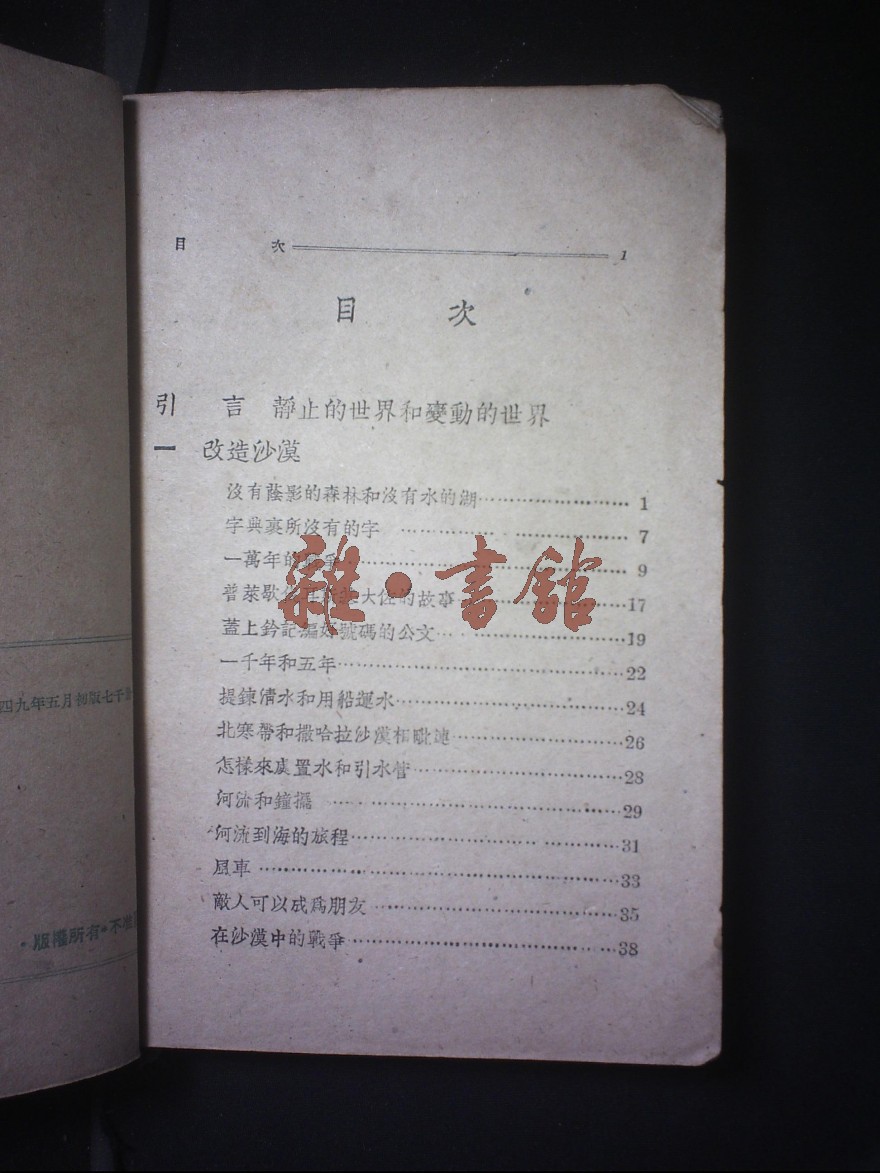 目 次 1
目 次
引 言 靜止的世界和變動的世界
一 改造沙漠
沒有蔭影的森林和沒有水的湖 1
字典裏所沒有的字 7
一萬年的 9
普萊歇 大佐的故事 17
蓋上鈐記編好號碼的公文 19
一千年和五年 22
提鍊清水和用船運水 24
北寒帶和撒哈拉沙漠相毗連 26
怎樣來處置水和引水管 28
河流和鐘擺 29
河流到海的旅程 31
風車 33
敵人可以成爲朋友 35
在沙漠中的戰爭 38
四九年五月初版七千
·版權所有·不准
雜·書館